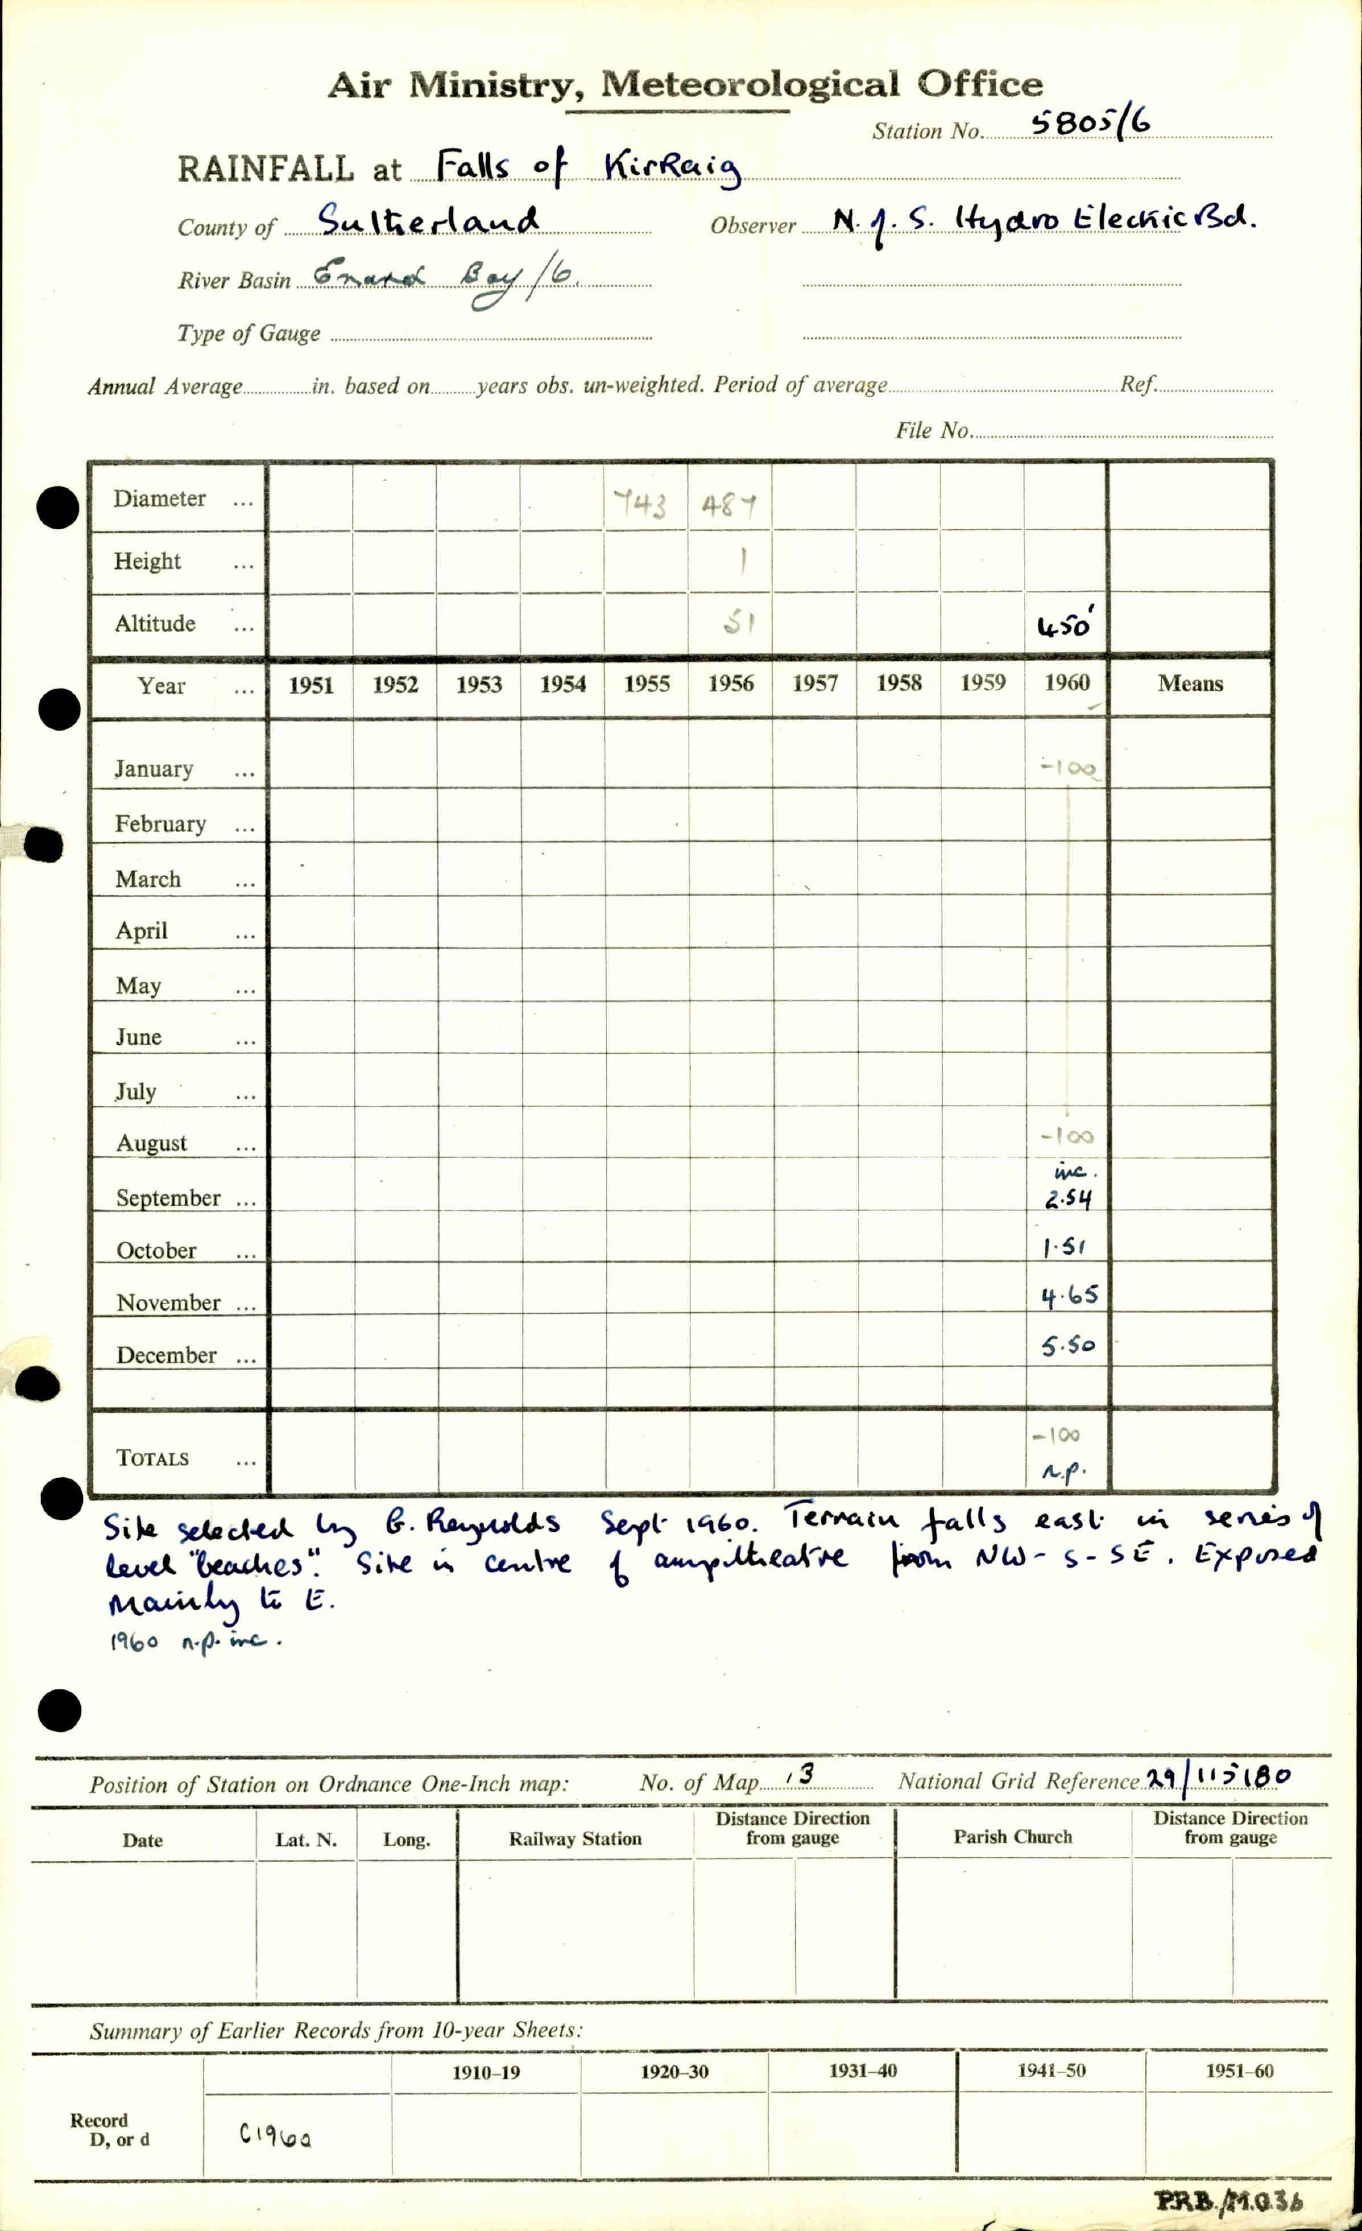 Air Ministry, Meteorological Office
Station No. 5805/6
RAINFALL at Falls of KirRaig
County of Sutherland Observer N. of S. Hydro Electric Bd.
River Basin Enard Bay /6.
Type of Gauge
Annual Average in. based on years obs. un-weighted. Period of average Ref.
File No.
Diameter ... 743 487
Height ... 1
Altitude ... 51 450'
Year ... 1951 1952 1953 1954 1955 1956 1957 1958 1959 1960 Means
January ... -100
February ...
March ...
April ...
May ...
June ...
July ...
August ... -100
inc.
September ... 2.54
October ... 1.51
November ... 4.65
December ... 5.50
-100
TOTALS ...
n.p.
Site selected by G. Reynolds Sept 1960. Terrain falls east in series of
level "beaches". Site in centre of ampitheatre from NW - S - SE. Exposed
mainly to E.
1960 n.p. inc.
Position of Station on Ordnance One-Inch map: No. of Map 13 National Grid Reference 29/115180
Date Lat. N. Long. Railway Station Distance Direction from gauge Parish Church Distance Direction from gauge
Summary of Earlier Records from 10-year Sheets:
1910–19 1920–30 1931–40 1941–50 1951–60
Record
D, or d C1960
P.R.B./M.O.36